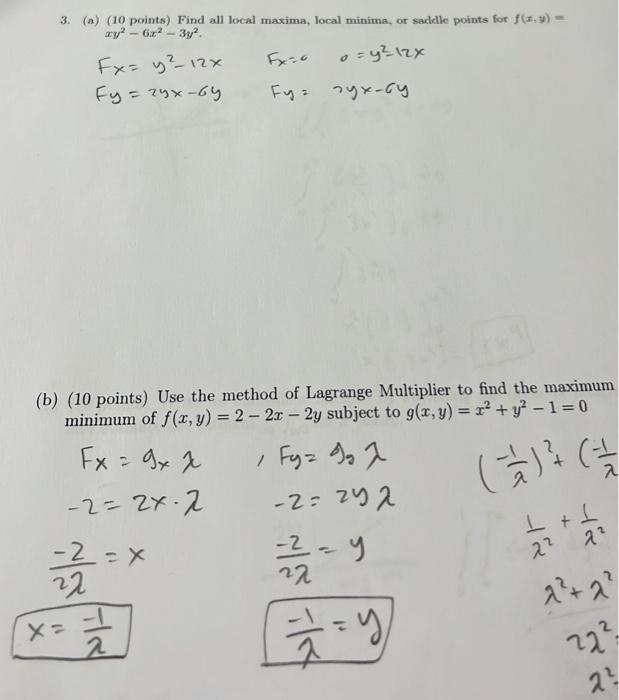 3. (a) (10 points) Find all local maxima, local minima, or saddle points for f(x, y) =
xy² − 6x² − 3y².
Fx = y² − 12x    Fx = 0    0 = y² − 12x
Fy = 2yx − 6y    Fy =    2yx − 6y
(b) (10 points) Use the method of Lagrange Multiplier to find the maximum
minimum of f(x, y) = 2 − 2x − 2y subject to g(x, y) = x² + y² − 1 = 0
Fx = gx λ    , Fy = gy λ    (-1/λ)² + (-1/λ
-2 = 2x · λ    -2 = 2y λ
-2/2λ = x    -2/2λ = y    1/λ² + 1/λ²
x = -1/λ    -1/λ = y    λ² + λ²
2λ²
λ²